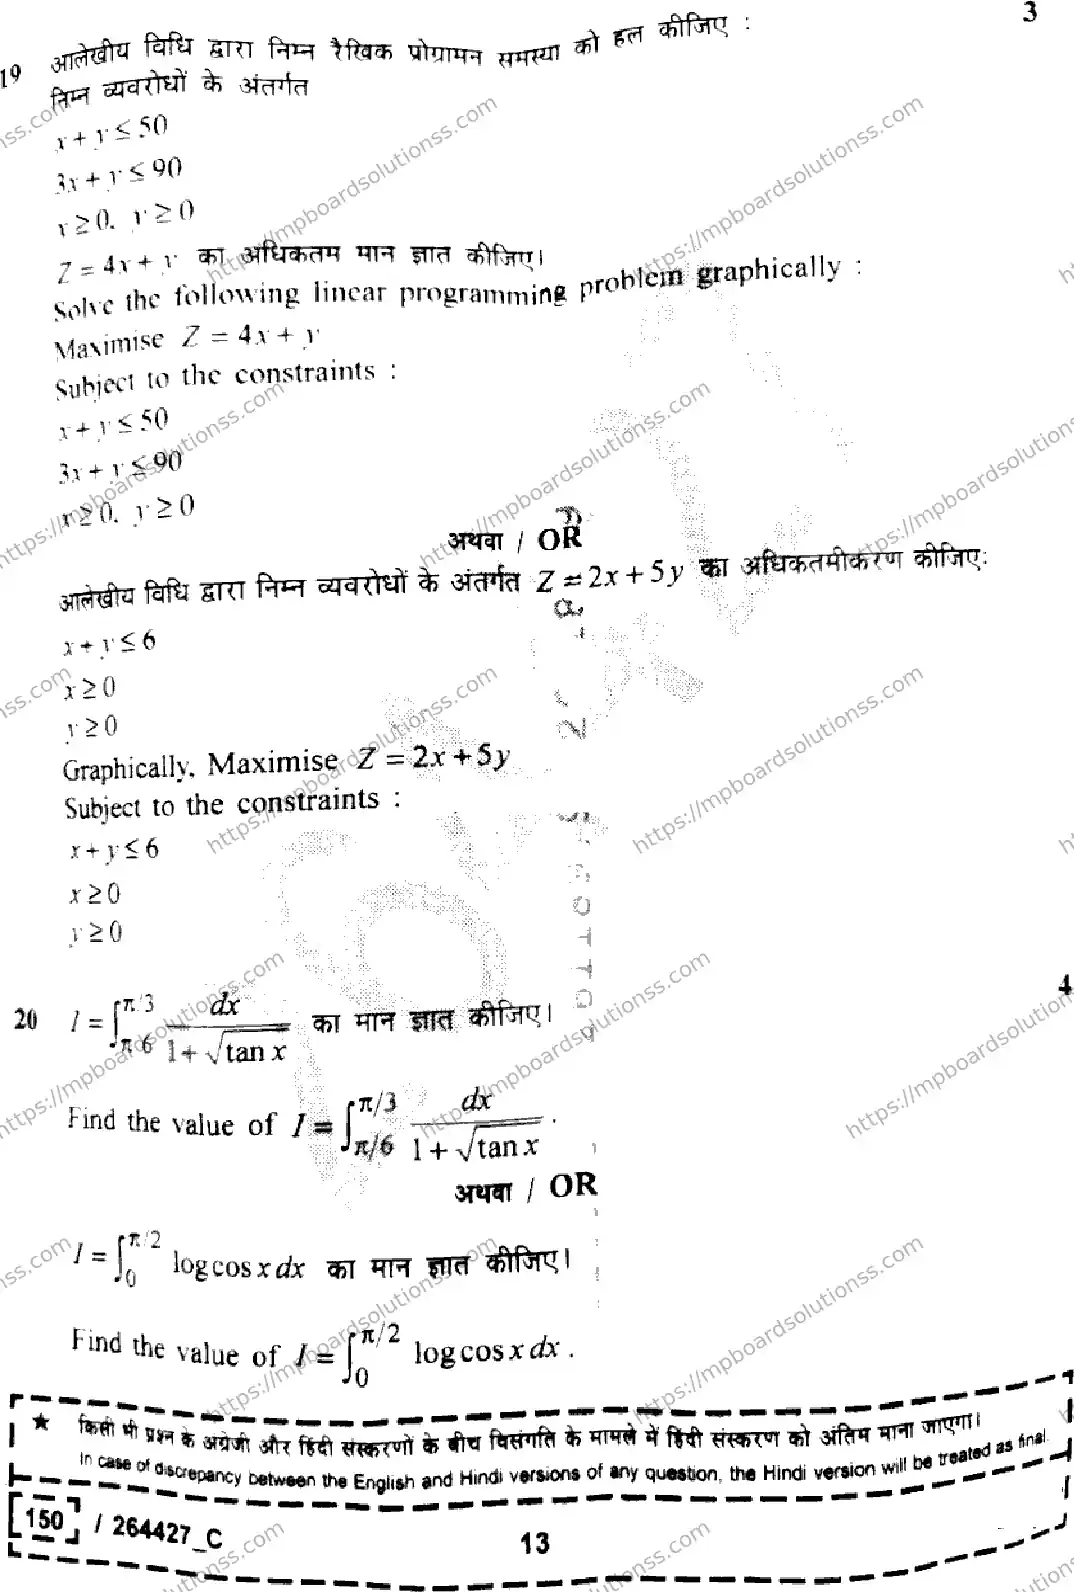 3
19 आलेखीय विधि द्वारा निम्न रैखिक प्रोग्रामन समस्या को हल कीजिए :
निम्न व्यवरोधों के अंतर्गत
x + y ≤ 50
3x + y ≤ 90
x ≥ 0, y ≥ 0
Z = 4x + y का अधिकतम मान ज्ञात कीजिए।
Solve the following linear programming problem graphically :
Maximise Z = 4x + y
Subject to the constraints :
x + y ≤ 50
3x + y ≤ 90
x ≥ 0, y ≥ 0
अथवा / OR
आलेखीय विधि द्वारा निम्न व्यवरोधों के अंतर्गत Z = 2x + 5y का अधिकतमीकरण कीजिए:
x + y ≤ 6
x ≥ 0
y ≥ 0
Graphically, Maximise Z = 2x + 5y
Subject to the constraints :
x + y ≤ 6
x ≥ 0
y ≥ 0
4
20 I = ∫_{π/6}^{π/3} dx / (1 + √tan x) का मान ज्ञात कीजिए।
Find the value of I = ∫_{π/6}^{π/3} dx / (1 + √tan x) .
अथवा / OR
I = ∫_0^{π/2} log cos x dx का मान ज्ञात कीजिए।
Find the value of I = ∫_0^{π/2} log cos x dx .
★ किसी भी प्रश्न के अंग्रेजी और हिंदी संस्करणों के बीच विसंगति के मामले में हिंदी संस्करण को अंतिम माना जाएगा।
In case of discrepancy between the English and Hindi versions of any question, the Hindi version will be treated as final.
150 / 264427_C
13
https://mpboardsolutionss.com